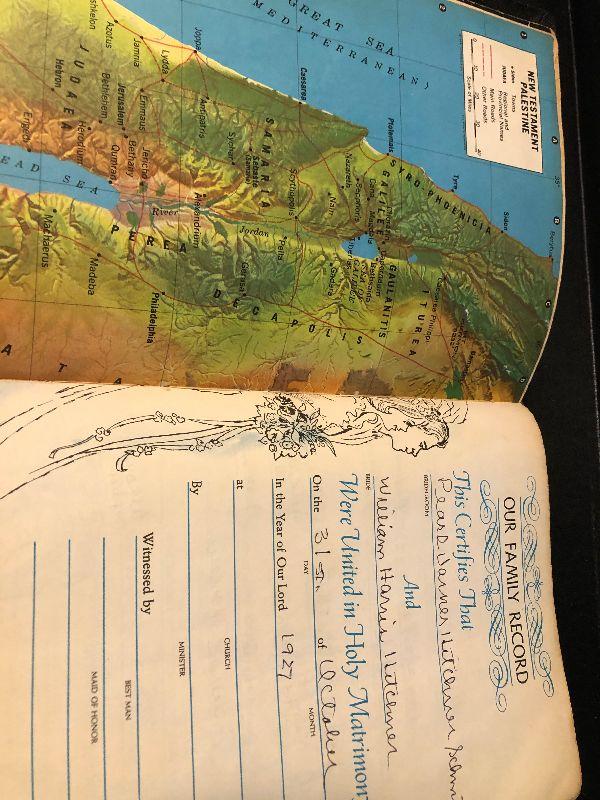 GREAT SEA
(MEDITERRANEAN)
NEW TESTAMENT
PALESTINE
Towns
Regional and
Provincial Names
Main Roads
Other Roads
Scale of Miles
Ashkelon
Azotus
Jamnia
Lydda
Joppa
Antipatris
Caesarea
Ptolemais
Tyre
Sidon
SYRO-PHOENICIA
JUDAEA
Hebron
Bethlehem
Jerusalem
Emmaus
Bethany
Jericho
Qumran
Herodium
Engedi
SAMARIA
Sychar
Scythopolis
Nazareth
Nain
Cana
GALILEE
Tiberias
GAULANITIS
ITUREA
Alexandrium
River
Jordan
Pella
Gerasa
Gadara
DECAPOLIS
PEREA
Philadelphia
Madeba
Machaerus
EAD SEA
OUR FAMILY RECORD
This Certifies That
Pearl Varner Hitchner
BRIDEGROOM
And
William Harris Hitchner
BRIDE
Were United in Holy Matrimony
On the 31st. of October
DAY
MONTH
In the Year of Our Lord 1927
at
CHURCH
By
MINISTER
Witnessed by
BEST MAN
MAID OF HONOR